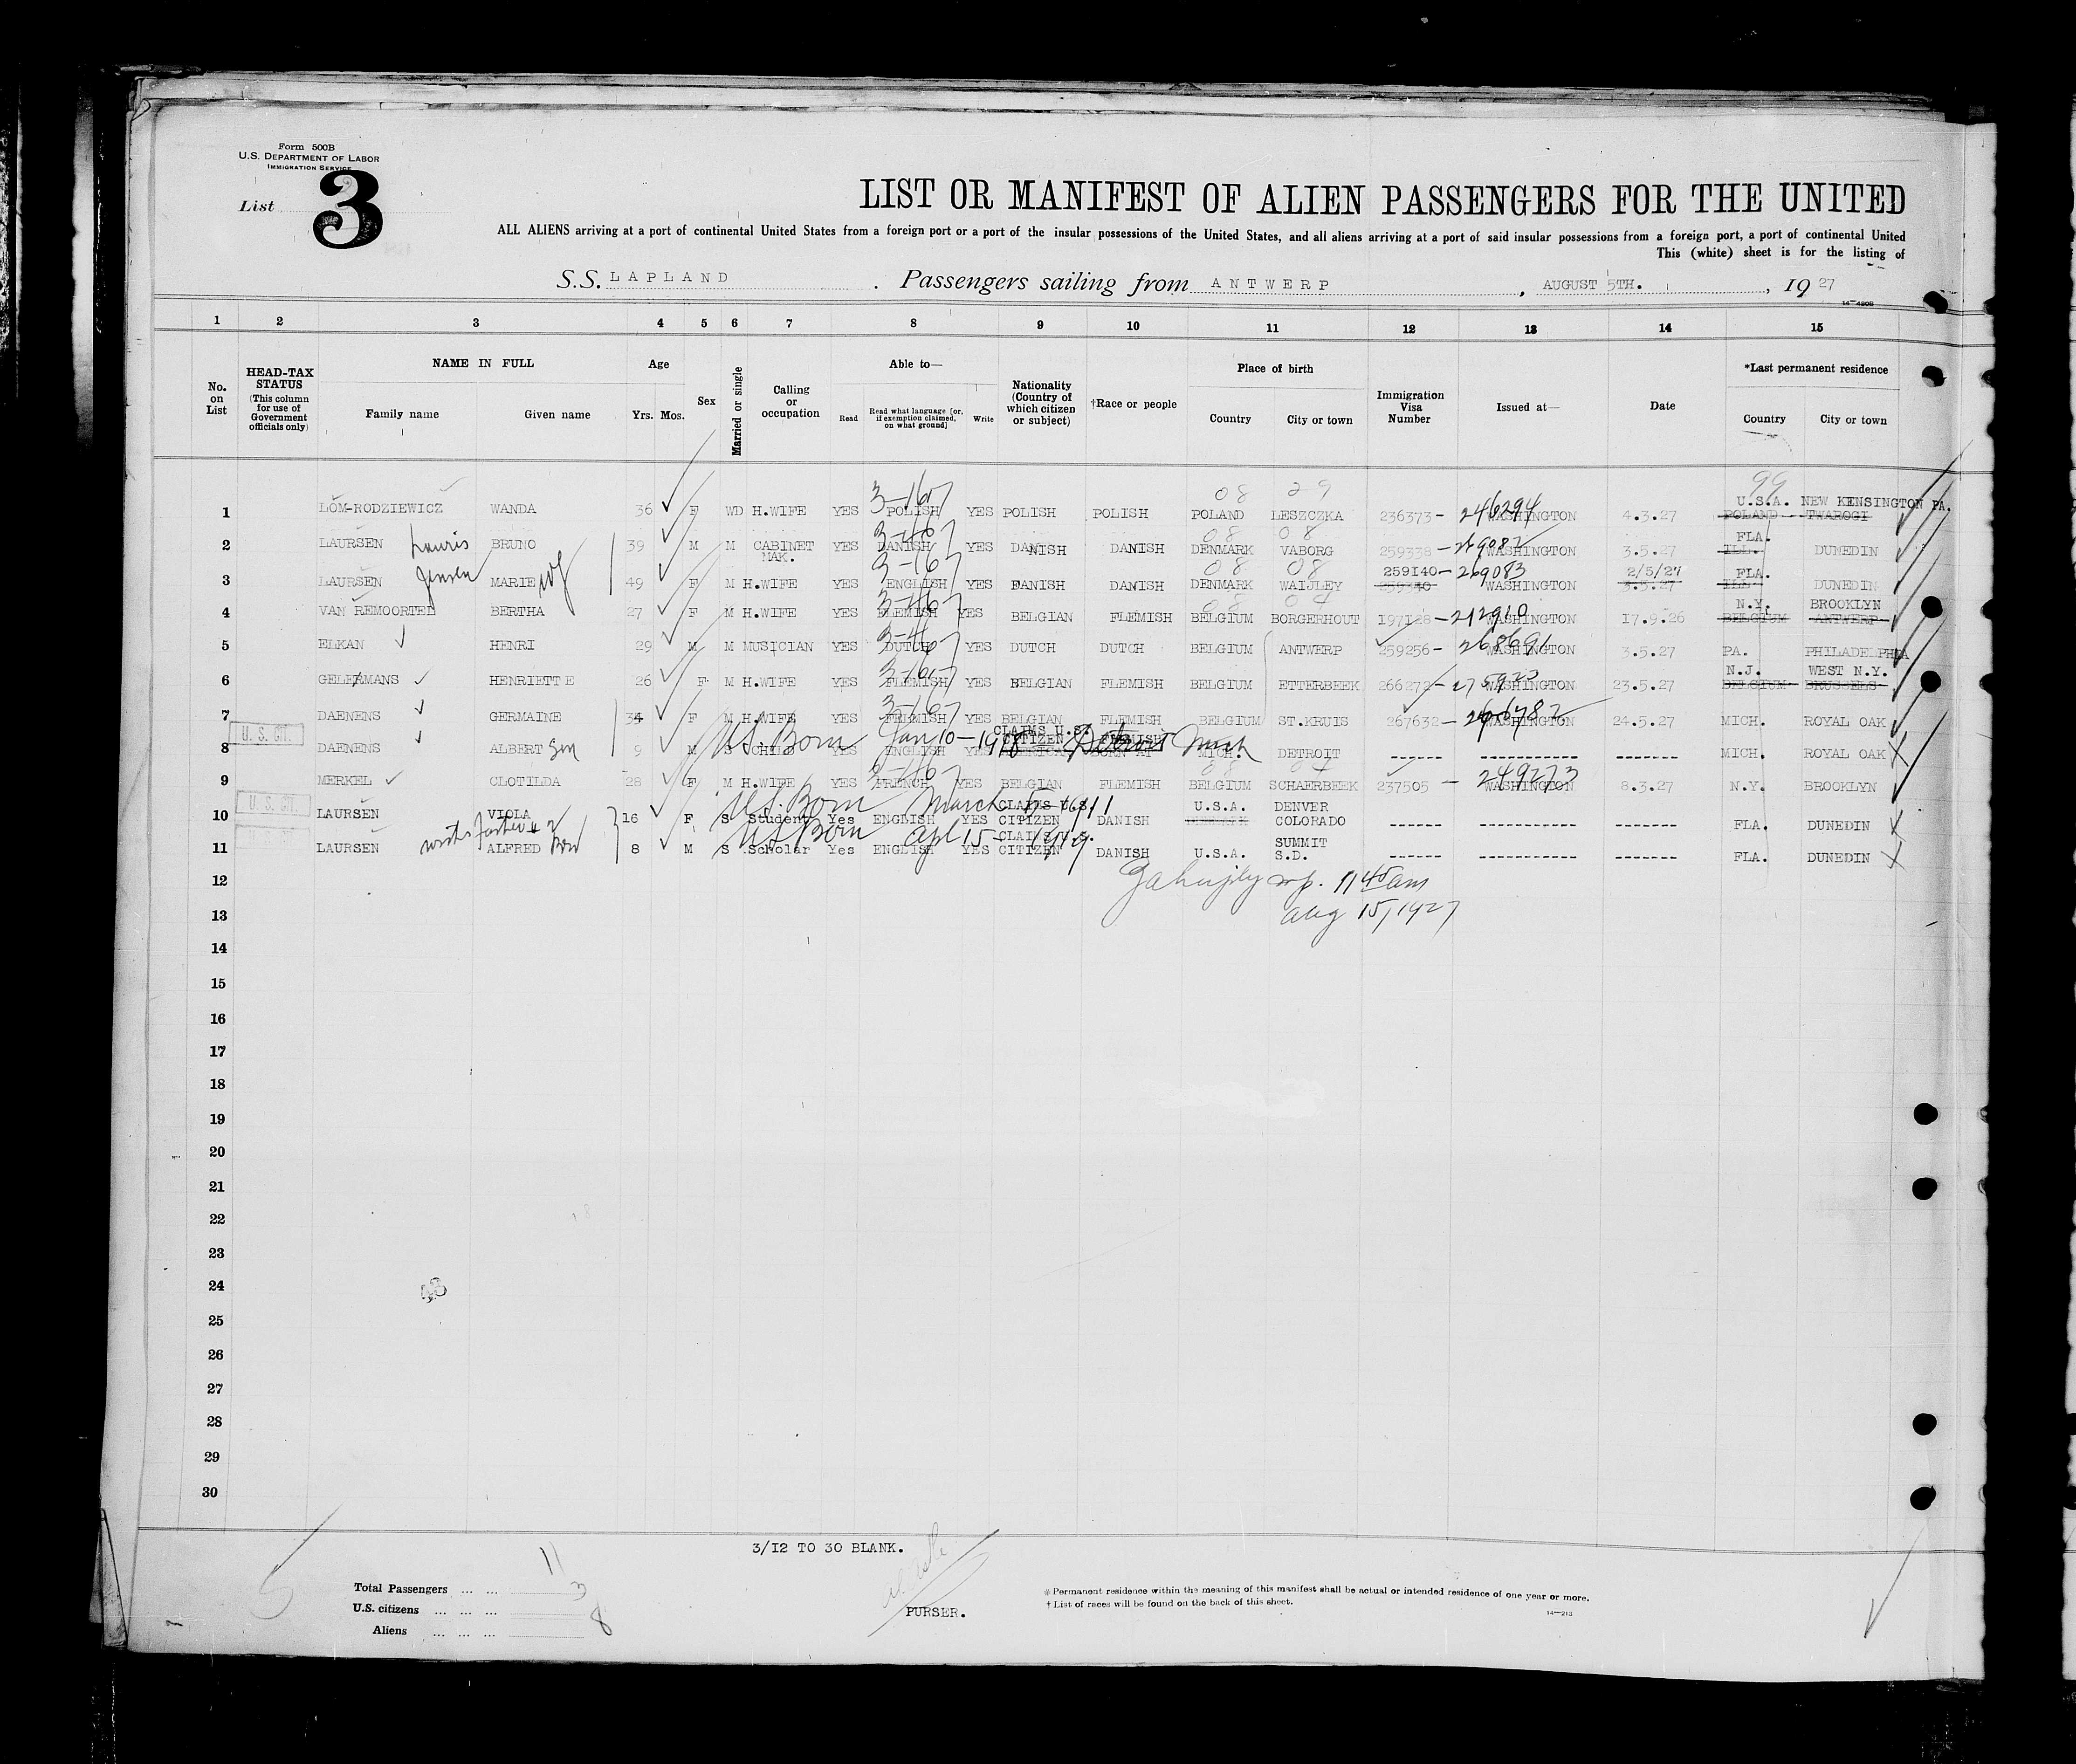 Form 500B
U.S. DEPARTMENT OF LABOR
IMMIGRATION SERVICE
List 3
LIST OR MANIFEST OF ALIEN PASSENGERS FOR THE UNITED
ALL ALIENS arriving at a port of continental United States from a foreign port or a port of the insular possessions of the United States, and all aliens arriving at a port of said insular possessions from a foreign port, a port of continental United
This (white) sheet is for the listing of
S.S. LAPLAND . Passengers sailing from ANTWERP , AUGUST 5TH. , 19 27
1 2 3 4 5 6 7 8 9 10 11 12 13 14 15
No. on List
HEAD-TAX STATUS (This column for use of Government officials only)
NAME IN FULL
Family name Given name
Age
Yrs. Mos.
Sex
Married or single
Calling or occupation
Able to—
Read Read what language [or, if exemption claimed, on what ground] Write
Nationality (Country of which citizen or subject)
†Race or people
Place of birth
Country City or town
Immigration Visa Number
Issued at—
Date
*Last permanent residence
Country City or town
08 29 99
U.S.A. NEW KENSINGTON PA.
1 LOM-RODZIEWICZ WANDA 36 F WD H.WIFE YES POLISH YES POLISH POLISH POLAND LESZCZKA 236373 - 246294 WASHINGTON 4.3.27 POLAND TWAROGI
08 08 FLA.
2 LAURSEN Lauris BRUNO 39 M M CABINET MAK. YES DANISH YES DANISH DANISH DENMARK VABORG 259338 - 269082 WASHINGTON 3.5.27 ILL. DUNEDIN
08 08 259140 - 269083 2/5/27 FLA.
3 LAURSEN Jensen MARIE wf 49 F M H.WIFE YES ENGLISH YES DANISH DANISH DENMARK WAIJLEY 259340 WASHINGTON 3.5.27 ILL. DUNEDIN
N.Y. BROOKLYN
4 VAN REMOORTEL BERTHA 27 F M H.WIFE YES FLEMISH YES BELGIAN FLEMISH BELGIUM BORGERHOUT 197128 - 212910 WASHINGTON 17.9.26 BELGIUM ANTWERP
5 ELKAN HENRI 29 M M MUSICIAN YES DUTCH YES DUTCH DUTCH BELGIUM ANTWERP 259256 - 268691 WASHINGTON 3.5.27 PA. PHILADELPHIA
N.J. WEST N.Y.
6 GELERMANS HENRIETTE 26 F M H.WIFE YES FLEMISH YES BELGIAN FLEMISH BELGIUM ETTERBEEK 266272 - 275923 WASHINGTON 23.5.27 BELGIUM BRUSSELS
7 DAENENS GERMAINE 34 F M H.WIFE YES FLEMISH YES BELGIAN FLEMISH BELGIUM ST.KRUIS 267632 - WASHINGTON 24.5.27 MICH. ROYAL OAK
U.S. CIT. U.S. Born Jan 10 - 1918 CLAIMS U.S. CITIZEN Detroit Mich
8 DAENENS ALBERT Son 9 M S CHILD YES ENGLISH YES AMERICAN BORN AT MICH. DETROIT ------ ------ ------ MICH. ROYAL OAK
9 MERKEL CLOTILDA 28 F M H.WIFE YES FRENCH YES BELGIAN FLEMISH BELGIUM SCHAERBEEK 237505 - 249273 WASHINGTON 8.3.27 N.Y. BROOKLYN
U.S. CIT. U.S. Born March 1911 CLAIMS U.S. U.S.A. DENVER
10 LAURSEN VIOLA 16 F S Student Yes ENGLISH YES CITIZEN DANISH DENMARK COLORADO ------ ------ ------ FLA. DUNEDIN
with Father # 2 U.S. Born Apl 15 - 1919 CLAIMS U.S. SUMMIT
11 LAURSEN ALFRED 8 M S Scholar Yes ENGLISH YES CITIZEN DANISH U.S.A. S.D. ------ ------ ------ FLA. DUNEDIN
12 11 45 am
13 Aug 15, 1927
14
15
16
17
18
19
20
21
22
23
24
25
26
27
28
29
30
3/12 TO 30 BLANK.
Total Passengers ... ... 11
U.S. citizens ... ... ... 3
Aliens ... ... ... 8
PURSER.
* Permanent residence within the meaning of this manifest shall be actual or intended residence of one year or more.
† List of races will be found on the back of this sheet.
14—213